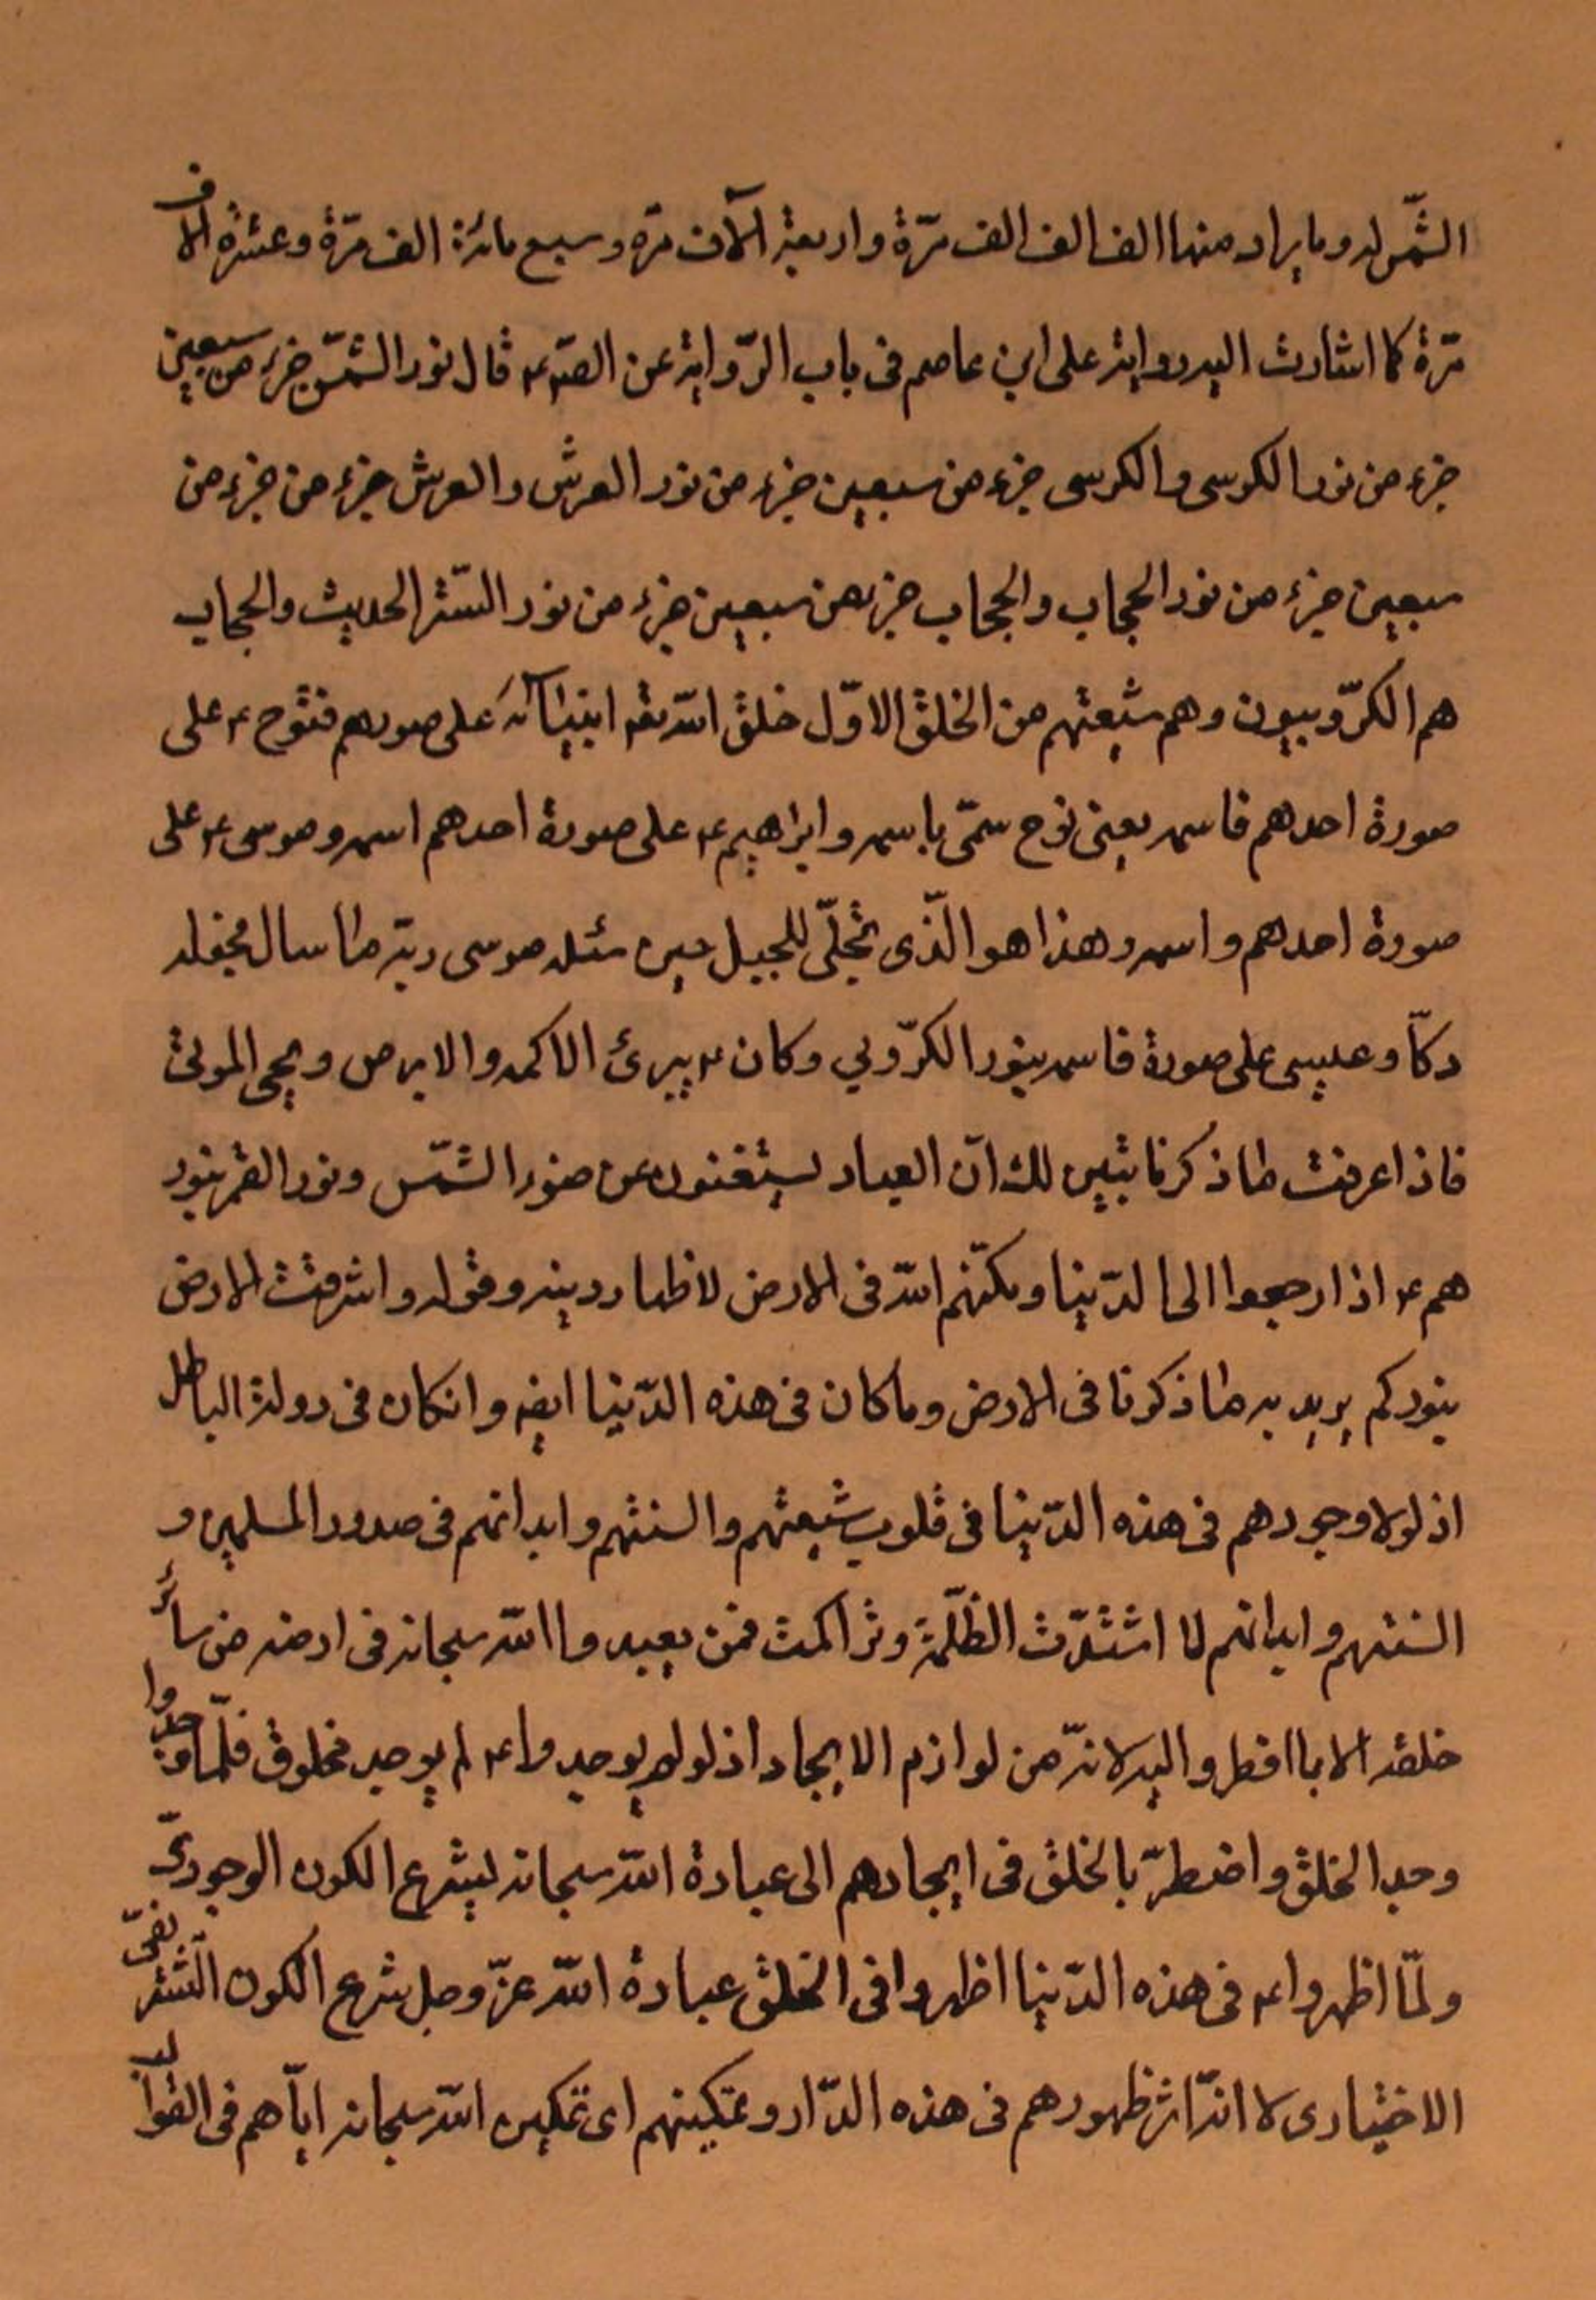 الشّمس له وما يراد منها الف الف الف مرّة واربعة الآف مرّه وسبع مائة الف مرّة وعشرة الاف
مرّة كما اشارت اليه رواية على ابن عاصم فى باب الرّواية عن الصّ ع قال نور الشّمس جزء من سبعين
جزء من نور الكرسى والكرسى جزء من سبعين جزء من نور العرش والعرش جزء من جزء من
سبعين جزء من نور الحجاب والحجاب جزء من سبعين جزء من نور السّتر الحديث والحجاب
هم الكرّوبيون وهم شيعتهم من الخلق الاوّل خلق الله تعه انبيائه على صورهم فنوح ع على
صورة احدهم فاسمه يعنى نوح سمّى باسمه وابراهيم ع على صورة احدهم اسمه وموسى ع على
صورة احدهم واسمه وهذا هو الّذى تجلّى للجبل حين سئله موسى ربّه ما سال فجعله
دكّا وعيسى على صورة فاسمه بنور الكرّوبي وكان ع يبرئ الاكمه والابرص ويحى الموتى
فاذا عرفت ما ذكرنا تبين لك انّ العباد يستغنون عن ضوء الشّمس ونور القمر بنور
هم ع اذا رجعوا الى الدّنيا ومكّنهم الله فى الارض لاظهار دينه وقوله واشرقت الارض
بنوركم يريد به ما ذكرنا فى الارض وما كان فى هذه الدّنيا ايضه وانكان فى دولة الباطل
اذ لولا وجودهم فى هذه الدّنيا فى قلوب شيعتهم والسنتهم وابدانهم فى صدور المسلمين و
السنتهم وابدانهم لما اشتدّت الظّلمة وتراكمت فمن يعبدوا الله سبحانه فى ارضه من سائر
خلقه الا بما افطروا اليه لانّه من لوازم الايجاد اذ لو لم يوجدوا ع لم يوجد مخلوق فلمّا وجدوا
وجد الخلق واضطرّ بالخلق فى ايجادهم الى عبادة الله سبحانه ليشرع الكون الوجودىّ
ولمّا اظهروا ع فى هذه الدّنيا اظهروا فى الخلق عبادة الله عزّ وجل شرع الكون
الاختيارى لا انّ اثر ظهورهم فى هذه الدّار وتمكينهم اى تمكين الله سبحانه ايّاهم فى القوالب